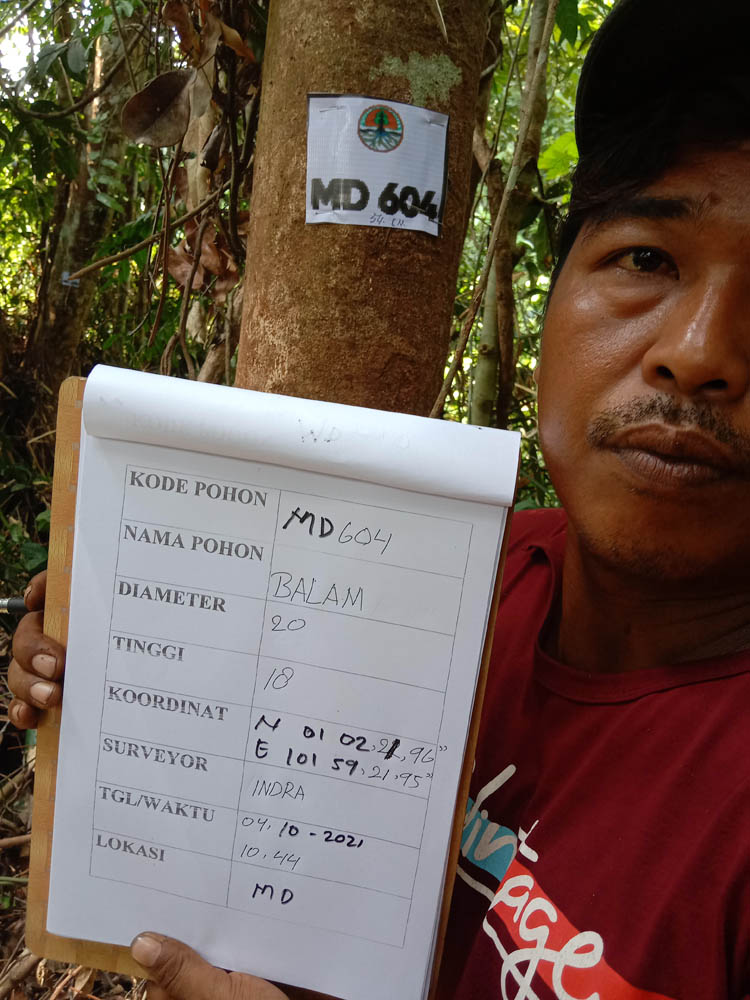 MD 604
54 CM
KODE POHON MD 604
NAMA POHON BALAM
DIAMETER 20
TINGGI 18
KOORDINAT N 01 02, 21, 96"
E 101 59, 21, 95"
SURVEYOR INDRA
TGL/WAKTU 04, 10 - 2021
10, 44
LOKASI MD
vintage